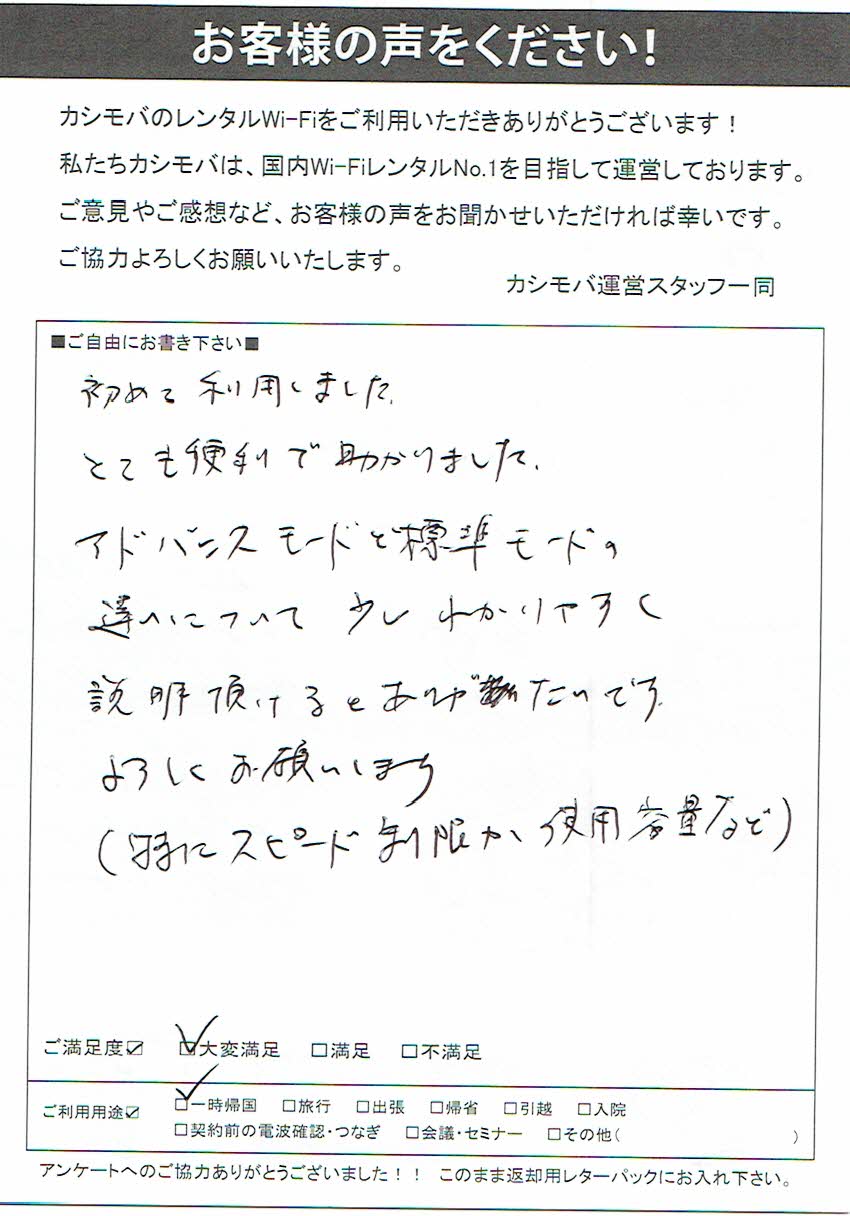 お客様の声をください!
カシモバのレンタルWi-Fiをご利用いただきありがとうございます！
私たちカシモバは、国内Wi-FiレンタルNo.1を目指して運営しております。
ご意見やご感想など、お客様の声をお聞かせいただければ幸いです。
ご協力よろしくお願いいたします。
カシモバ運営スタッフ一同
■ご自由にお書き下さい■
初めて利用しました。
とても便利で助かりました。
アドバンスモードと標準モードの
違いについて少しわかりやすく
説明頂けるとありがたいです。
よろしくお願いします
(特にスピード制限か、使用容量など)
ご満足度☑ ☑大変満足 □満足 □不満足
ご利用用途☑ ☑一時帰国 □旅行 □出張 □帰省 □引越 □入院
□契約前の電波確認・つなぎ □会議・セミナー □その他( )
アンケートへのご協力ありがとうございました！！ このまま返却用レターパックにお入れ下さい。